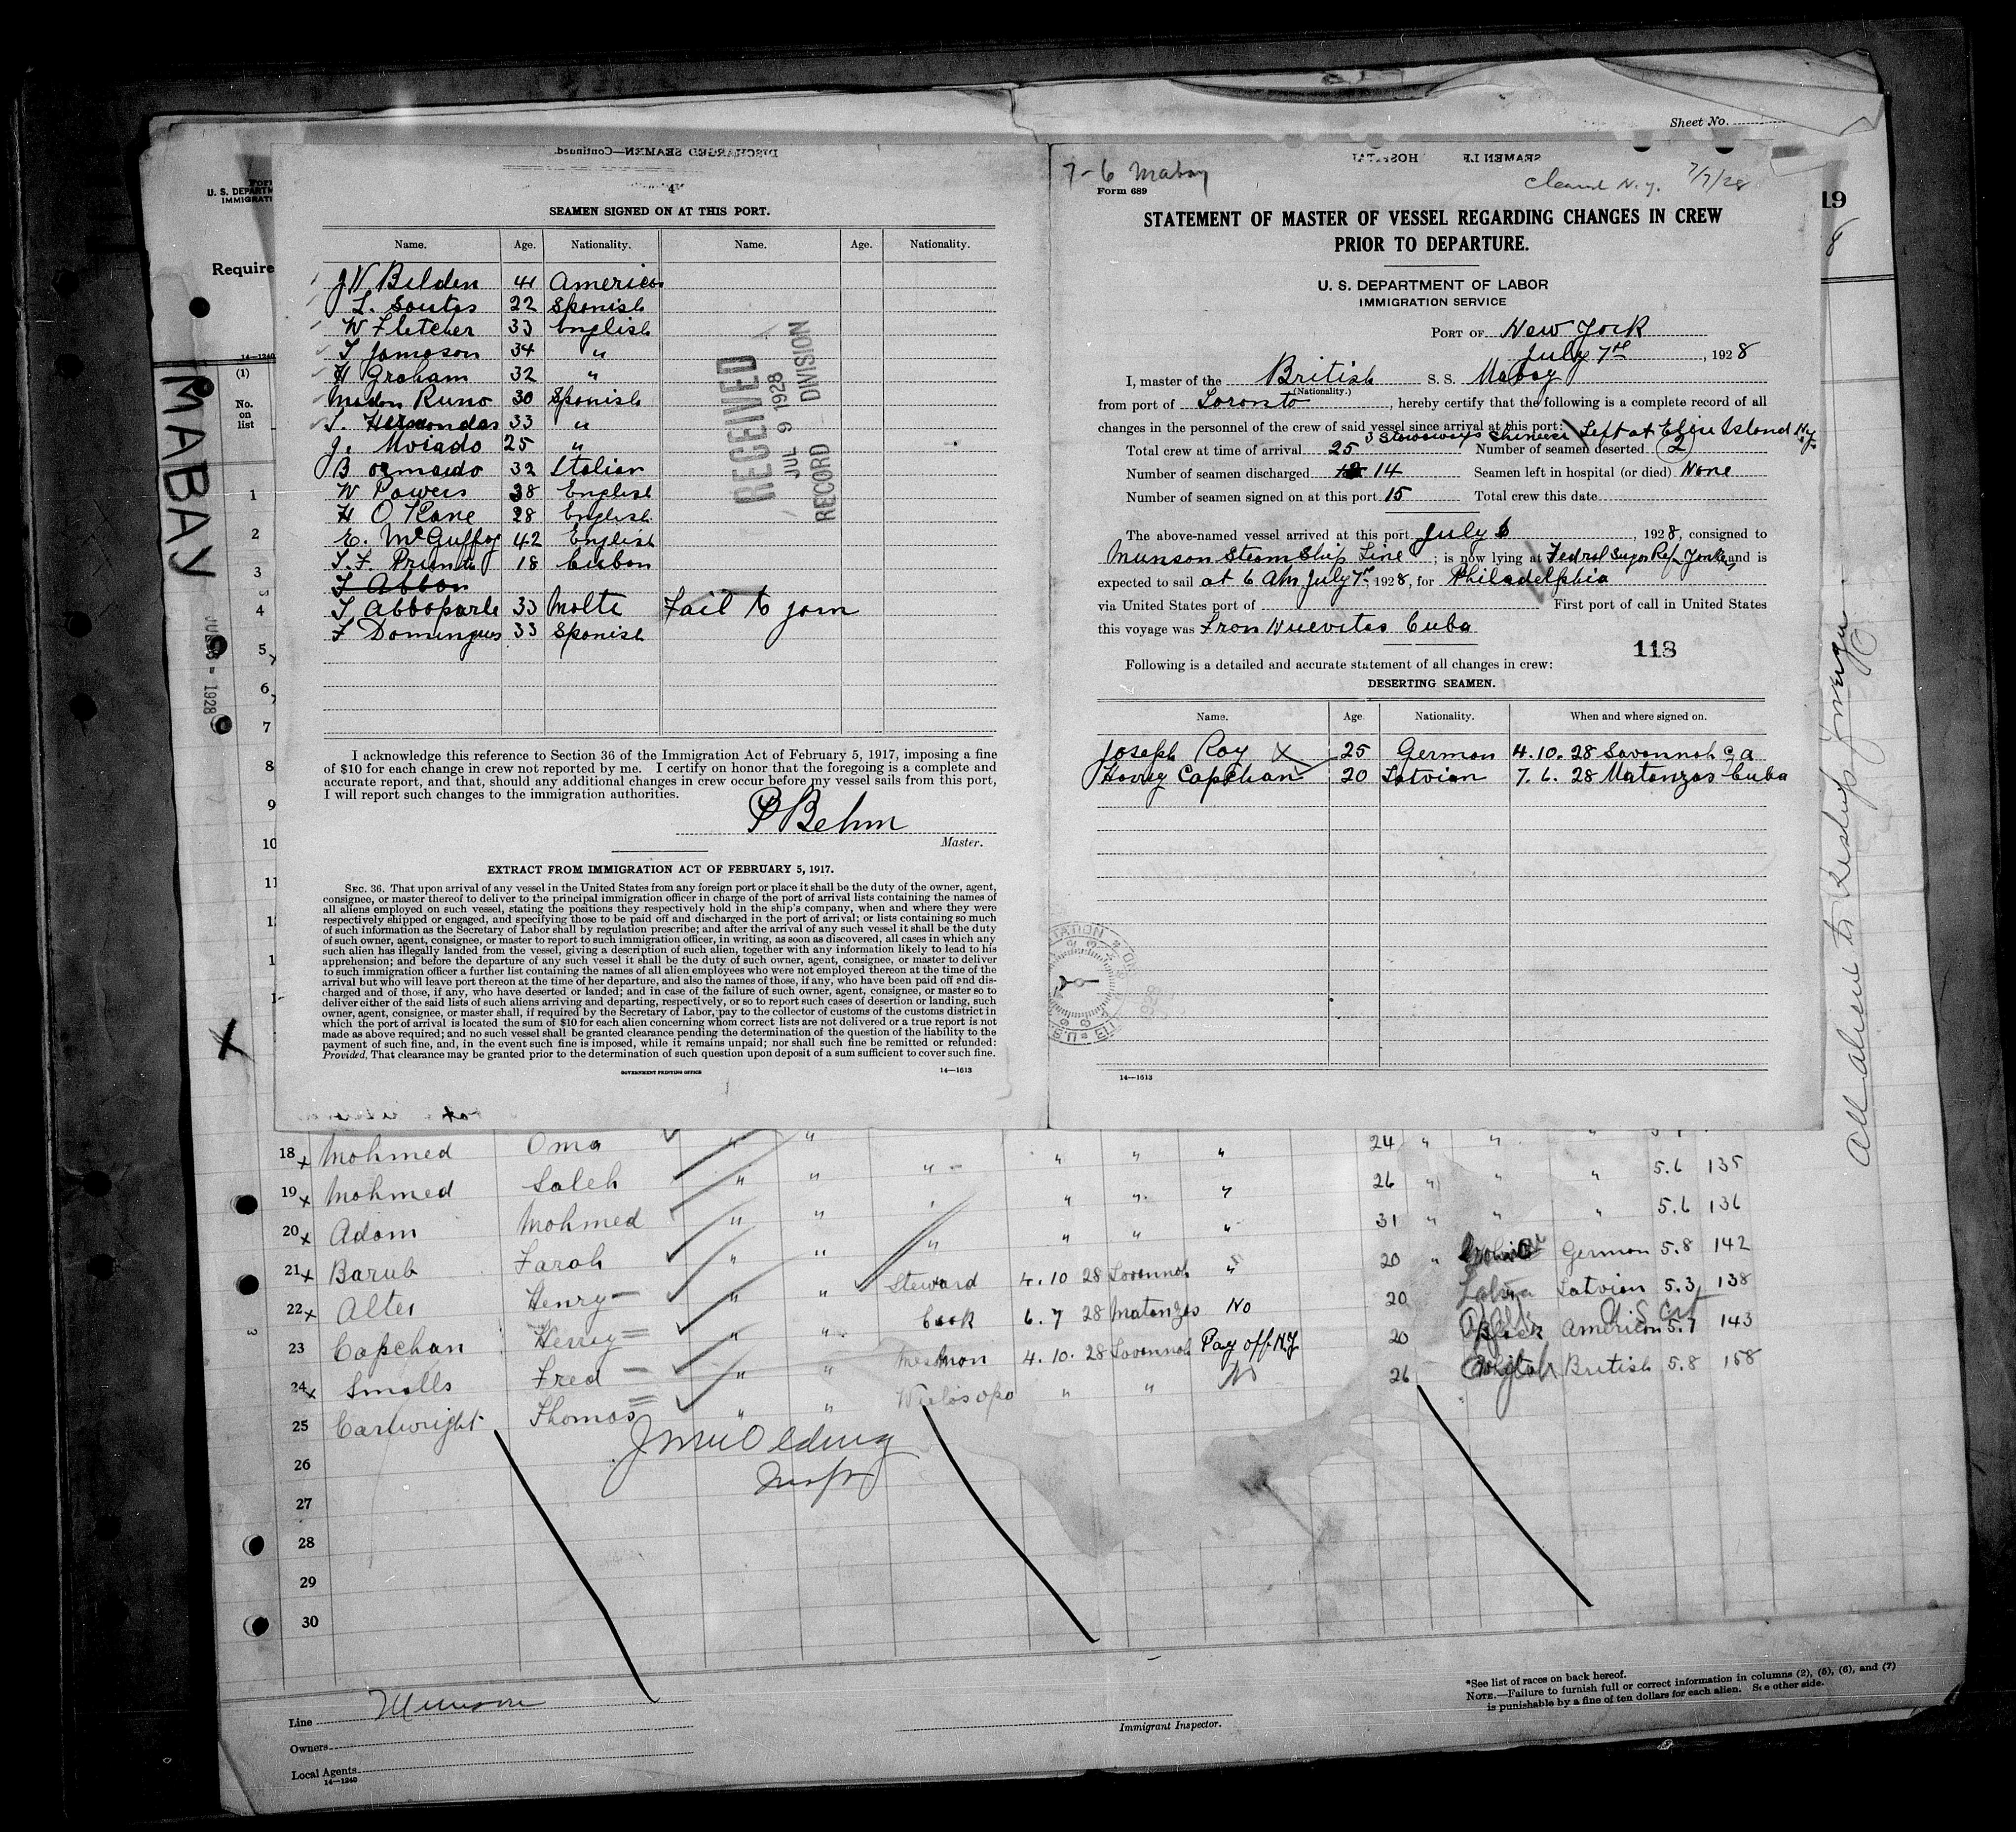 Sheet No.
DISCHARGED SEAMEN—Continued.
4
SEAMEN SIGNED ON AT THIS PORT.
Name. Age. Nationality. Name. Age. Nationality.
J V Belden 41 American
L. Soutos 22 Spanish
W Fletcher 33 English
T Jameson 34 "
H Graham 32 "
Madon Runo 30 Spanish
S. Hernondas 33 "
J. Moiado 25 "
B Ozmaido 32 Italian
W Powers 38 English
H O Kane 28 English
E. McGuffog 42 English
T. F. 18 Cuban
T Abbon
T Abboparle 33 Malte Fail to join
F Domingues 33 Spanish
RECEIVED
JUL 9 1928
RECORD DIVISION
I acknowledge this reference to Section 36 of the Immigration Act of February 5, 1917, imposing a fine
of $10 for each change in crew not reported by me. I certify on honor that the foregoing is a complete and
accurate report, and that, should any additional changes in crew occur before my vessel sails from this port,
I will report such changes to the immigration authorities.
P Behm
Master.
EXTRACT FROM IMMIGRATION ACT OF FEBRUARY 5, 1917.
SEC. 36. That upon arrival of any vessel in the United States from any foreign port or place it shall be the duty of the owner, agent,
consignee, or master thereof to deliver to the principal immigration officer in charge of the port of arrival lists containing the names of
all aliens employed on such vessel, stating the positions they respectively hold in the ship's company, when and where they were
respectively shipped or engaged, and specifying those to be paid off and discharged in the port of arrival; or lists containing so much
of such information as the Secretary of Labor shall by regulation prescribe; and after the arrival of any such vessel it shall be the duty
of such owner, agent, consignee, or master to report to such immigration officer, in writing, as soon as discovered, all cases in which any
such alien has illegally landed from the vessel, giving a description of such alien, together with any information likely to lead to his
apprehension; and before the departure of any such vessel it shall be the duty of such owner, agent, consignee, or master to deliver
to such immigration officer a further list containing the names of all alien employees who were not employed thereon at the time of the
arrival but who will leave port thereon at the time of her departure, and also the names of those, if any, who have been paid off and dis-
charged and of those, if any, who have deserted or landed; and in case of the failure of such owner, agent, consignee, or master so to
deliver either of the said lists of such aliens arriving and departing, respectively, or so to report such cases of desertion or landing, such
owner, agent, consignee, or master shall, if required by the Secretary of Labor, pay to the collector of customs of the customs district in
which the port of arrival is located the sum of $10 for each alien concerning whom correct lists are not delivered or a true report is not
made as above required; and no such vessel shall be granted clearance pending the determination of the question of the liability to the
payment of such fine, and, in the event such fine is imposed, while it remains unpaid; nor shall such fine be remitted or refunded:
Provided, That clearance may be granted prior to the determination of such question upon deposit of a sum sufficient to cover such fine.
GOVERNMENT PRINTING OFFICE 14—1613
7-6 Mabay
Cleared N.Y. 7/7/28
Form 689
STATEMENT OF MASTER OF VESSEL REGARDING CHANGES IN CREW
PRIOR TO DEPARTURE.
U. S. DEPARTMENT OF LABOR
IMMIGRATION SERVICE
PORT OF New York
July 7th, 1928
I, master of the British S. S. Mabay
(Nationality.)
from port of Toronto, hereby certify that the following is a complete record of all
changes in the personnel of the crew of said vessel since arrival at this port:
3 Stowaways Chinese Left at Ellis Island N.Y.
Total crew at time of arrival 25 Number of seamen deserted 2
Number of seamen discharged 14 Seamen left in hospital (or died) None
Number of seamen signed on at this port 15 Total crew this date
The above-named vessel arrived at this port July 6, 1928, consigned to
Munson Steam Ship Line; is now lying at Fedrel Sugar Ref. Yonkers and is
expected to sail at 6 AM July 7th, 1928, for Philadelphia
via United States port of First port of call in United States
this voyage was From Nuevitas Cuba
118
Following is a detailed and accurate statement of all changes in crew:
DESERTING SEAMEN.
Name. Age Nationality. When and where signed on.
Joseph Roy X 25 German 4.10.28 Savannah Ga
Harry Capchan 20 Latvian 7.6.28 Matanzas Cuba
14—1613
U. S. DEPARTM
IMMIGRATI
Require
14—1240
(1)
No.
on
list
MABAY
1928
1
2
3
4
5
6
7
8
9
10
19
18 x Mohmed Oma " " " " " " 24 " " "
19 x Mohmed Saleh " " " " " " 26 " " " 5.6 135
20 x Adam Mohmed " " " " " " 31 " " " 5.6 136
21 x Barub Farah " "
22 x Alter Henry " " Steward 4.10 28 Savannah " 20 " German 5.8 142
23 Capchan Henry " " Cook 6.7 28 Matanzas No 20 Latvian 5.3 138
24 x Smalls Fred " " Messman 4.10.28 Savannah Pay off N.Y. 20 Black American 5.7 143
U.S. Cit
25 Cartwright Thomas " " " " No 26 English British 5.8 158
26
27
28
29
30
Line Munson
Owners
Local Agents
14—1240
Immigrant Inspector.
*See list of races on back hereof.
NOTE.—Failure to furnish full or correct information in columns (2), (5), (6), and (7)
is punishable by a fine of ten dollars for each alien. See other side.
All aliens to